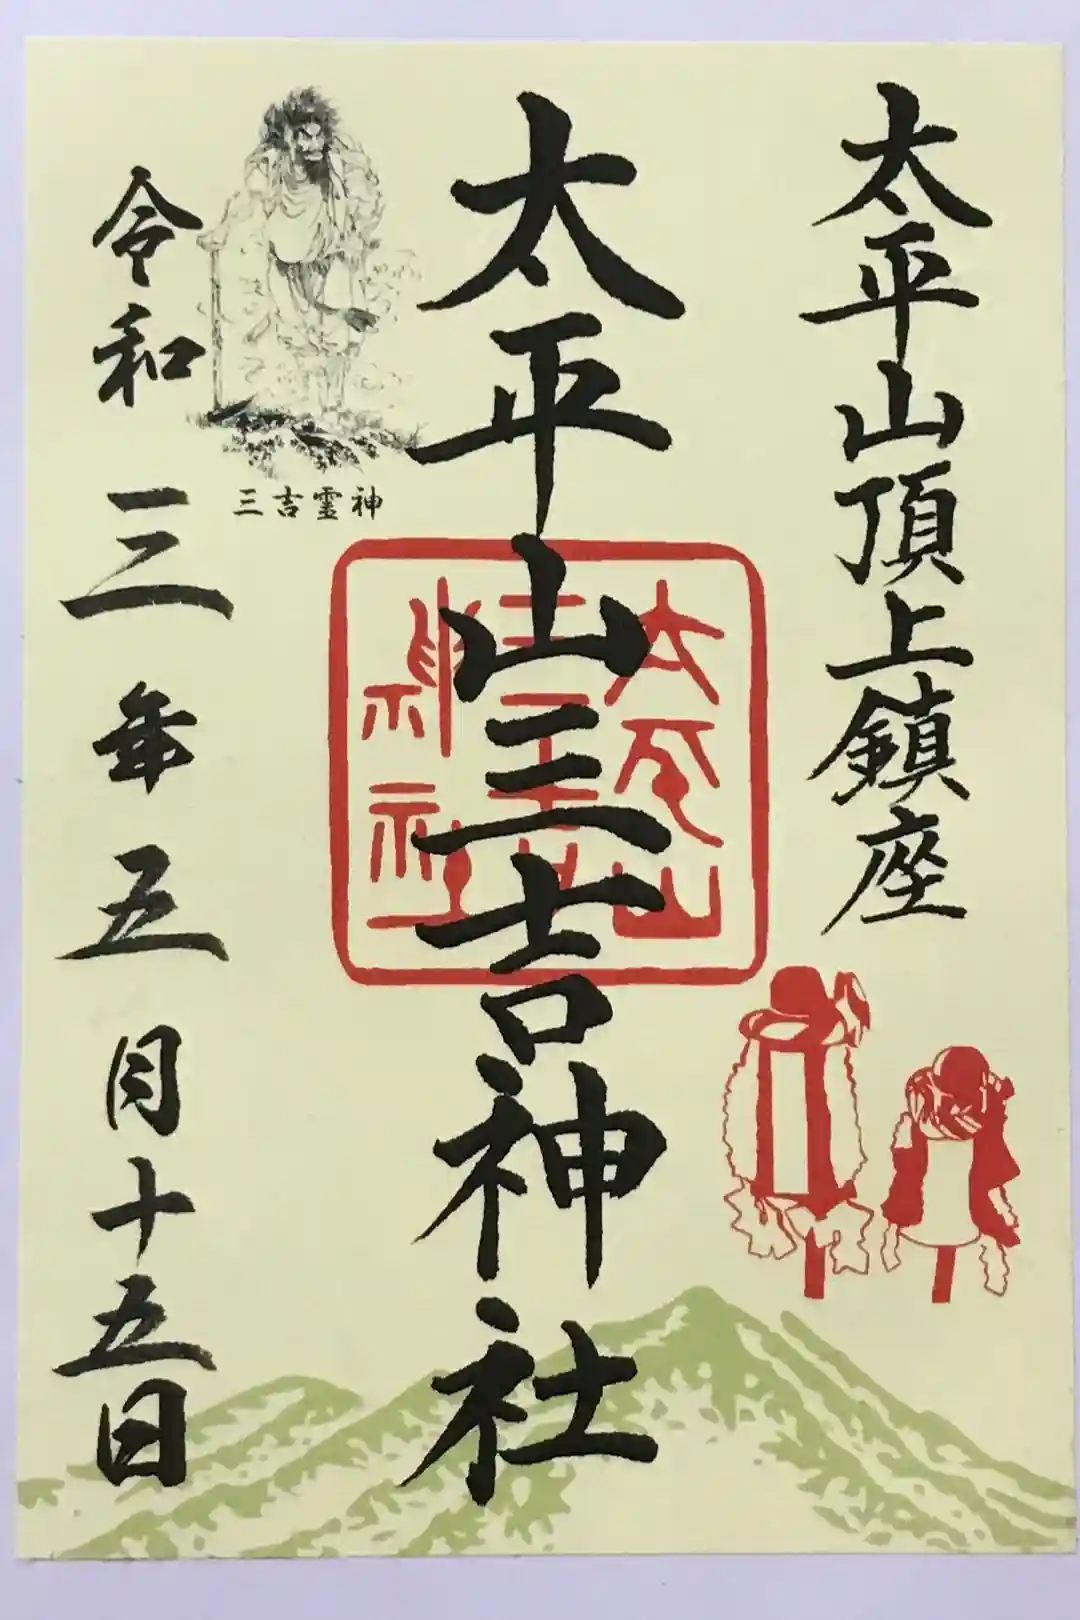 太平山頂上鎮座
太平山三吉神社
太平山
三吉
神社
三吉霊神
令和三年五月十五日